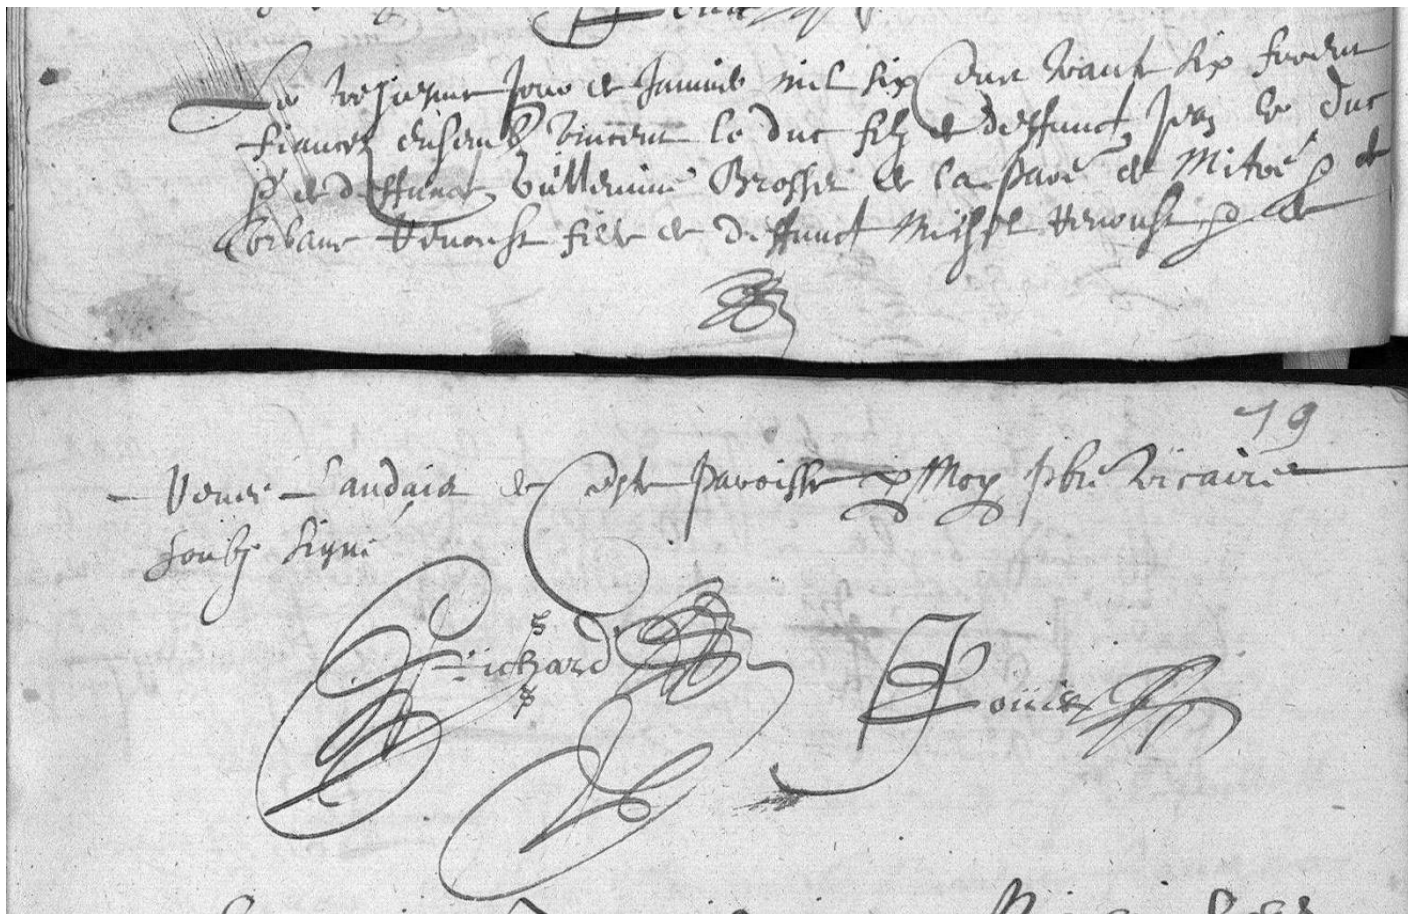 Le tresiesme jour de Janvier mil six cent trante six furent
fiancez ensemble Vincent le duc filz de deffunct Jean le duc
& de deffuncte Guillemine Brosset de la par de Mitré & de
Urbane Venoust fille de deffunct Michel Venoust &
79
Landais de ceste paroisse p Moy pbre Vicaire
soubz signé
Richard
Louis